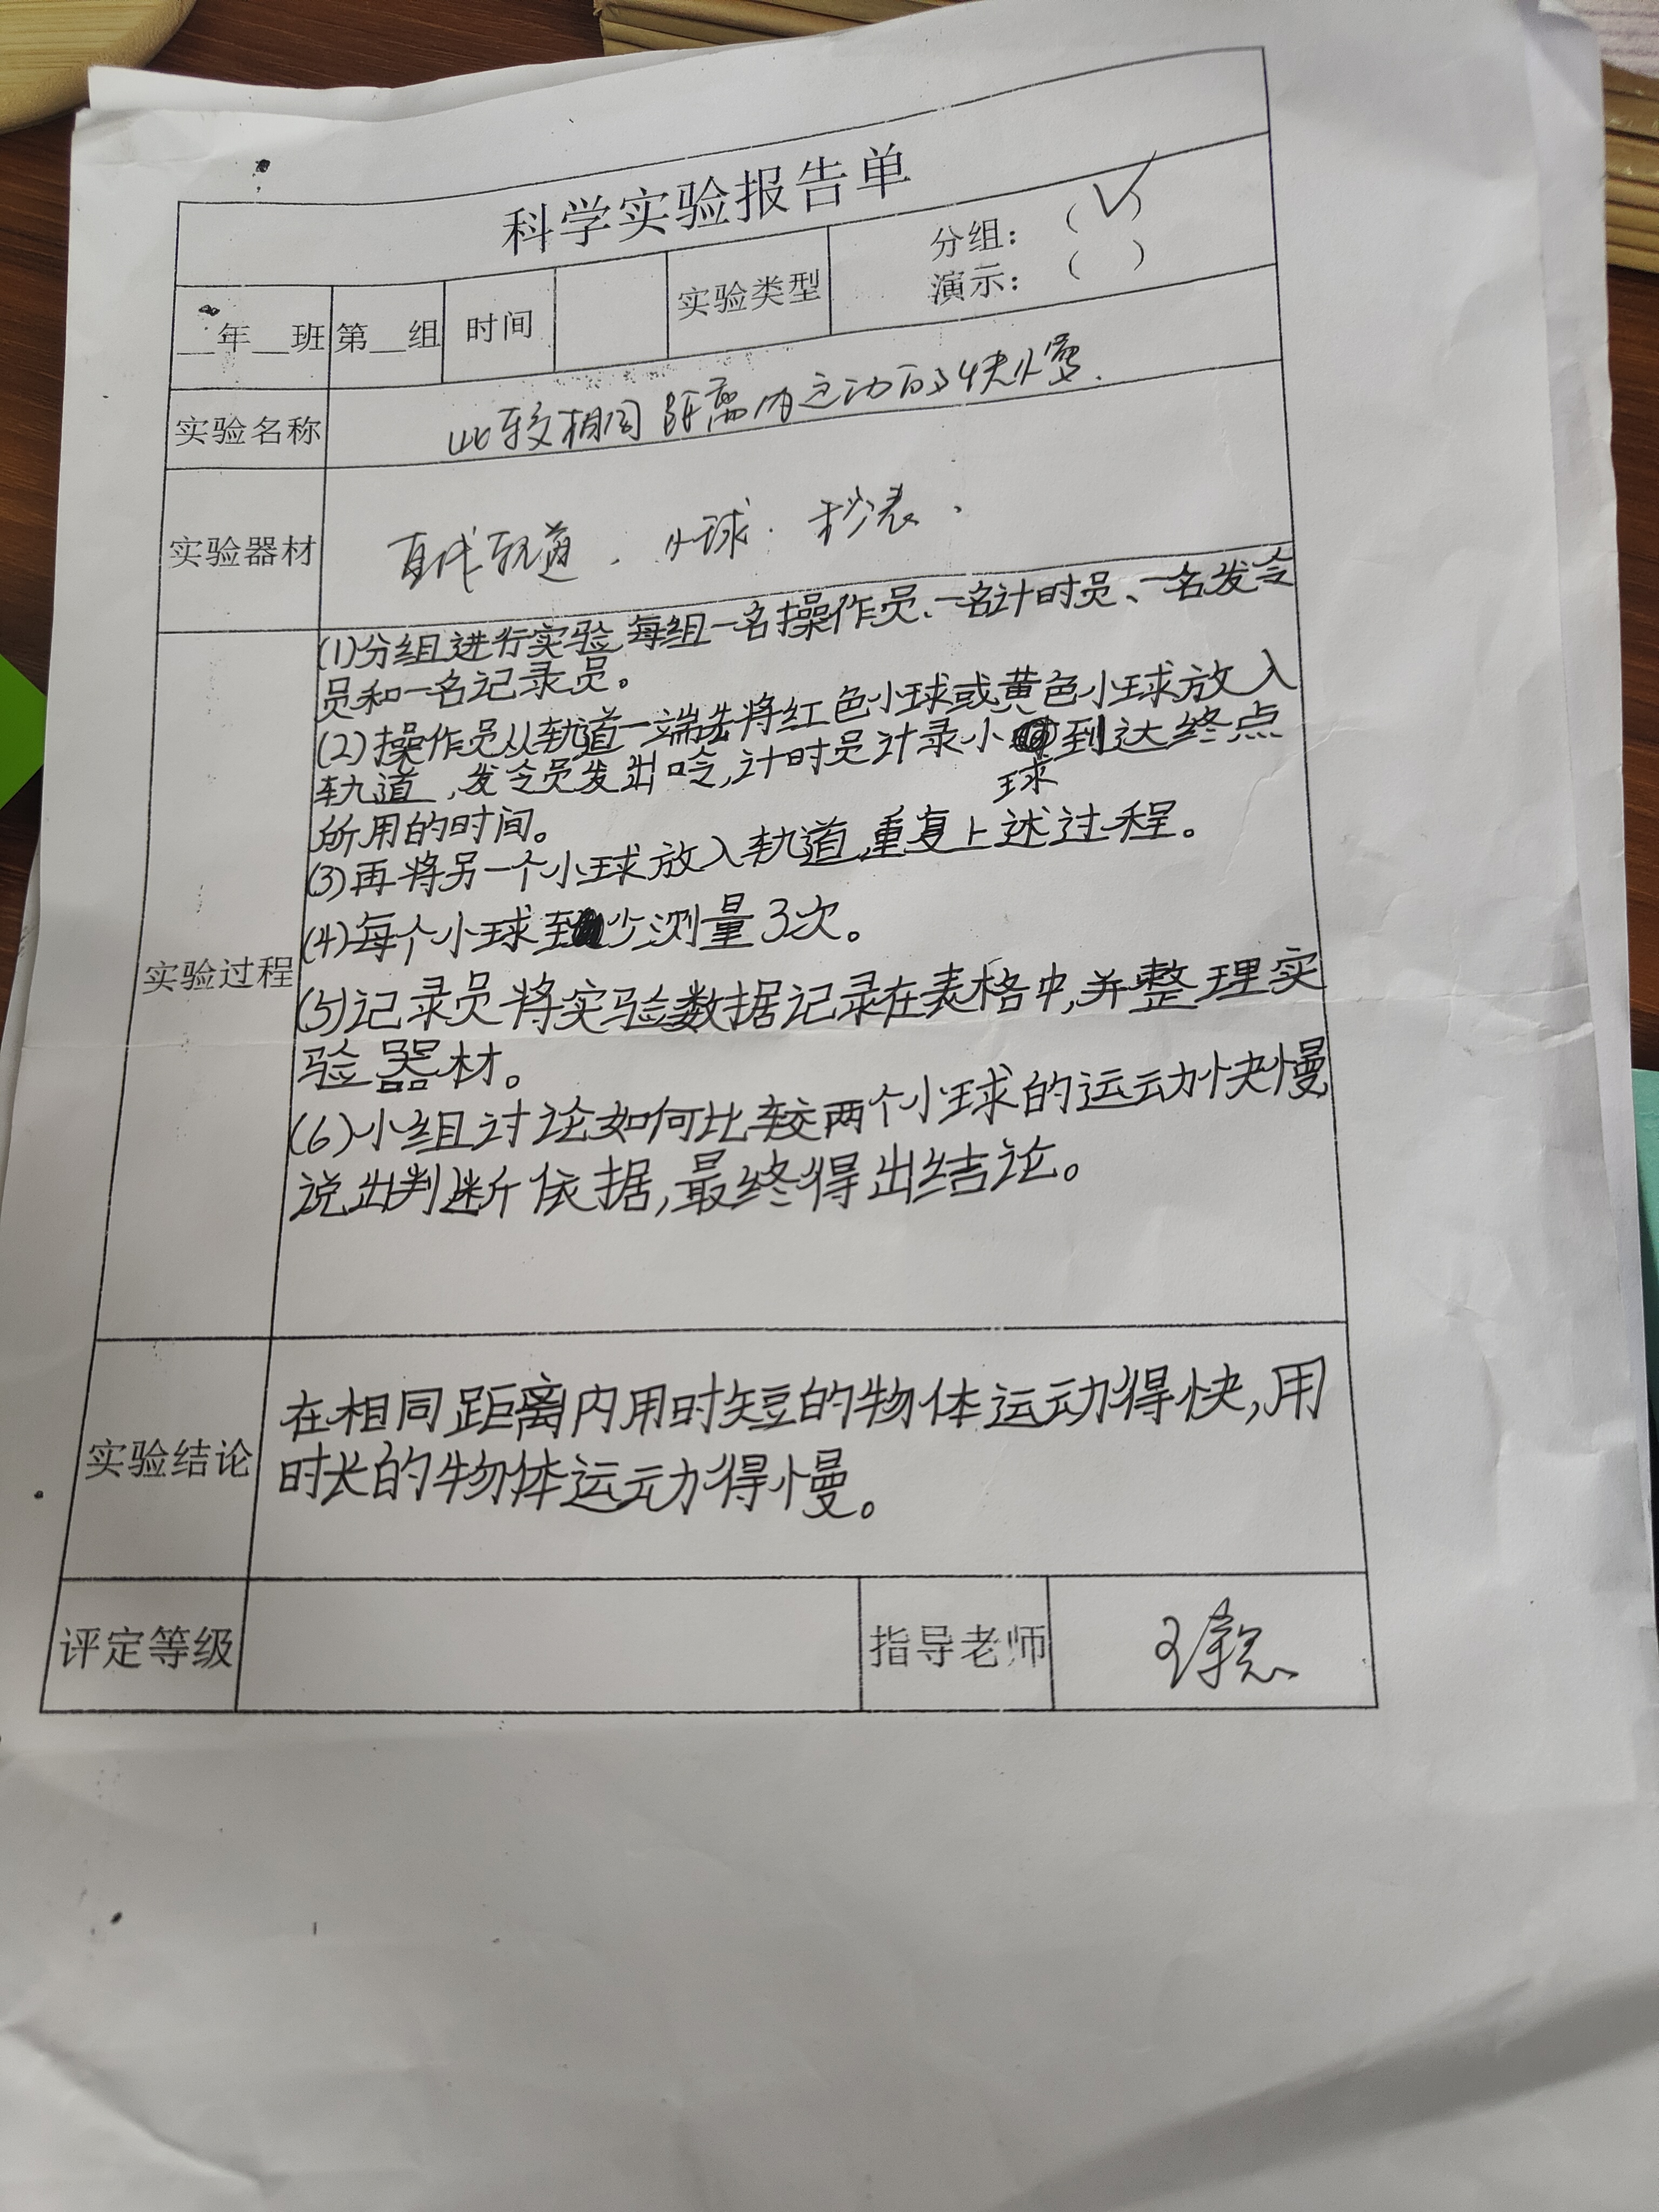 科学实验报告单
__年__班 第__组 时间 实验类型 分组：（√）
演示：（ ）
实验名称 比较相同距离内运动的快慢.
实验器材 直线轨道、小球、秒表、
实验过程
(1)分组进行实验,每组一名操作员、一名计时员、一名发令
员和一名记录员。
(2)操作员从轨道一端先将红色小球或黄色小球放入
轨道,发令员发出呤,计时员计录小球到达终点
所用的时间。
(3)再将另一个小球放入轨道,重复上述过程。
(4)每个小球至少测量3次。
(5)记录员将实验数据记录在表格中,并整理实
验器材。
(6)小组讨论如何比较两个小球的运动快慢
说出判断依据,最终得出结论。
实验结论
在相同距离内用时短的物体运动得快,用
时长的物体运动得慢。
评定等级 指导老师